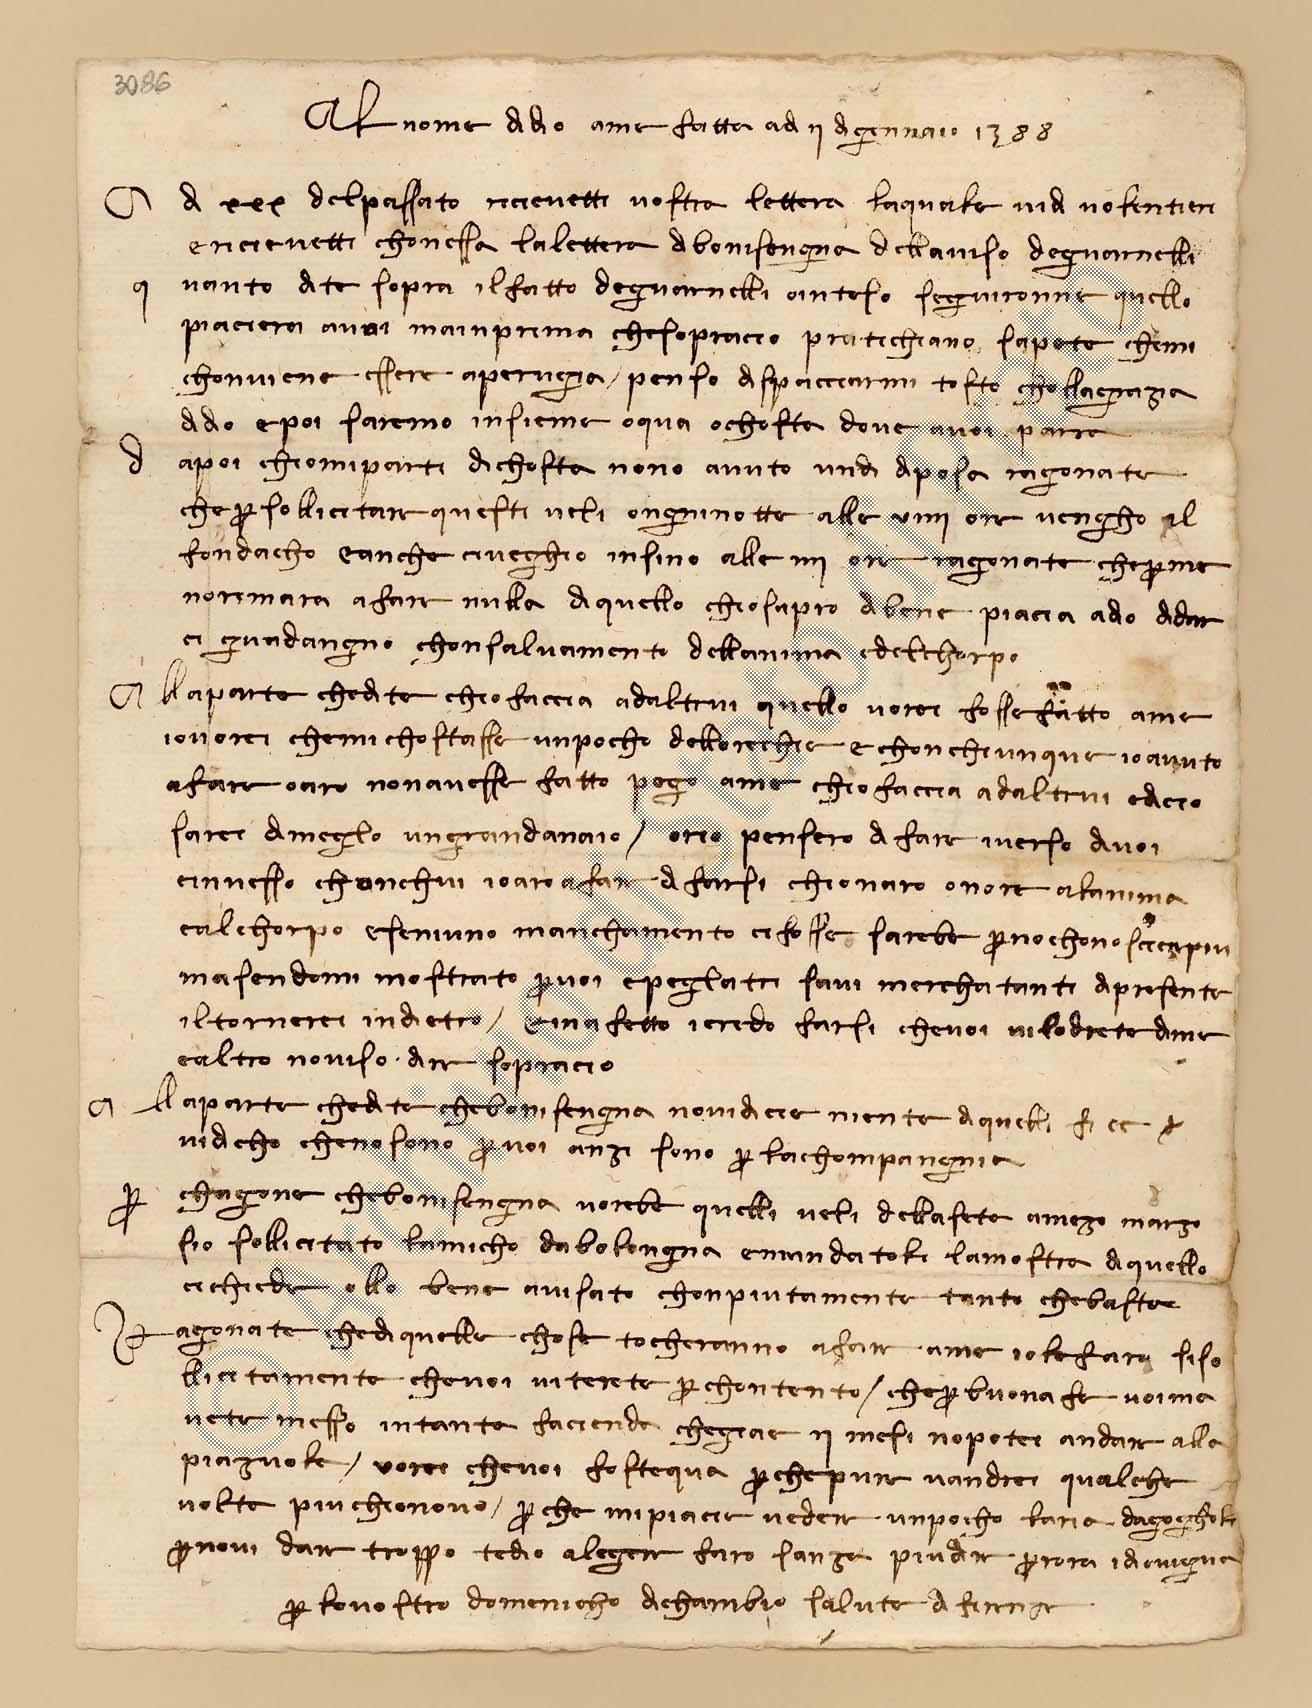 3086
Al nome di dio amen fatta adì ij di gennaio 1388
A dì xxx del passato ricievetti vostra lettera la quale vidi volentieri
e ricievetti chon essa la lettera di bonisengna dell aviso de guarnelli
q uanto dite sopra il fatto de guarnelli ò inteso seguironne quello
piaciera a voi ma in prima che sopra ciò pratichiano sapete che mi
chonviene essere a perugia / penso dispacciarmi tosto cholla grazia
di dio e poi saremo insieme o qua o chostà dove a voi parrà
d a poi ch io mi partì di chostà nonn ò avuto un dì di posa ragonate
che per sollicitare questi veli ongni notte alle viiij ore vengho al
fondacho e anche ci veghio insino alle iiij ore ragonate che per me
no rimarrà a fare nulla di quello ch io saprò di bene piaccia a dio di dar
ci guadangno chon salvamento dell anima e del chorpo
A lla parte che dite ch io faccia ad altrui quello vorei fosse fatto a me
io vorei che mi chostasse un pocho dell orechie e chon chiunque io ò avuto
a fare o arò non avesse fatto pegio a me ch io faccia ad altrui e di ciò
sarei di meglo un gran danaio / or io penserò di fare inverso di voi
e inverso chon chui io arò a fare di farsi ch io n arò onore a l anima
e al chorpo e se niuno manchamento ci fosse sarebe per no chonosciere più
ma sendomi mostrato per voi e per gl altri savi merchatanti di presente
il tornerei indietro / e in afetto i credo farsi che voi vi lodrete di me
e altro no vi so dire sopra ciò
A lla parte che dite che bonisengna no vi dicie niente di quelli f. cc
vi dicho che no sono per voi anzi sono per la chompangnia
per chagione che bonisengna vorebe quelli veli della seta a mezo marzo
sì ò sollicitato l amicho da bolongna e mandatoli la mostra di quello
ci chiede ollo bene avisato chonpiutamente tanto che basta
R agonate che di quelle chose tocheranno a fare a me io le farò sì so
llicitamente che voi vi terete per chontento / che per buona fè voi m a
vete messo in tante faciende che già è ij mesi no potei andare alla
piazuole / vorei che voi foste qua perchè pure v andrei qualche
volta più ch io no vo / perchè mi piacie vedere un pocho l aria da gogholi
per no vi dare troppo tedio a legere farò sanza più dire per ora idio vi guardi
per lo vostro domenicho di chambio salute di firenze